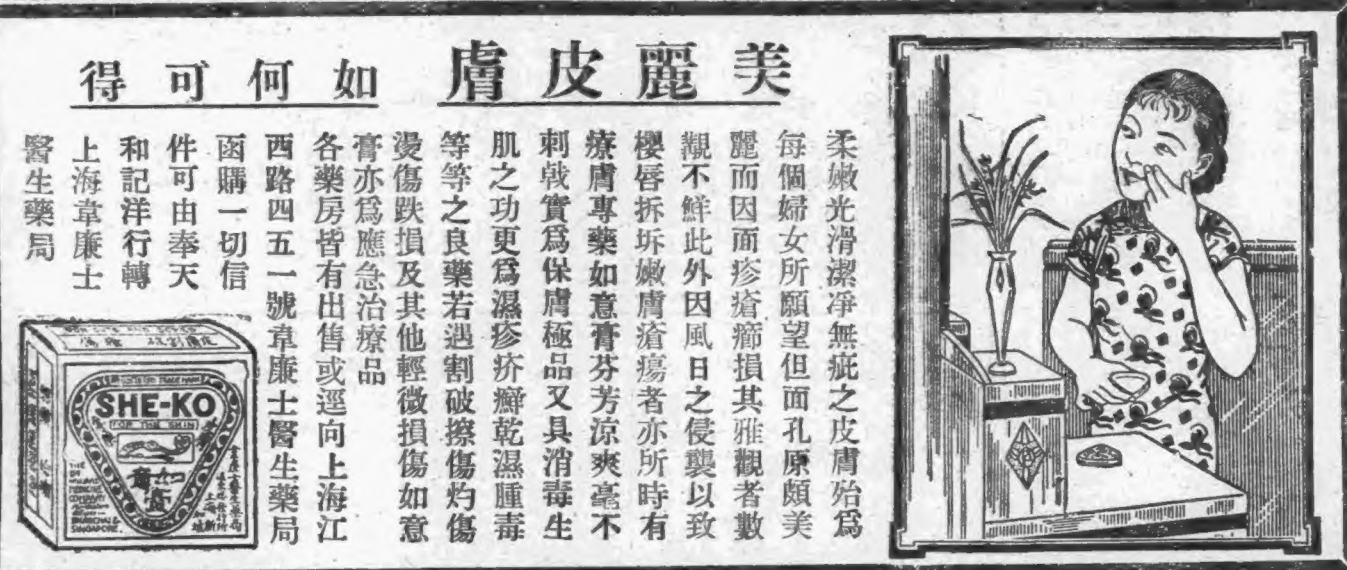 美麗皮膚
如何可得
柔嫩光滑潔凈無疵之皮膚殆爲
每個婦女所願望但面孔原頗美
麗而因面疹瘡癤損其雅觀者數
觀不鮮此外因風日之侵襲以致
櫻唇拆坼嫩膚瘡瘍者亦所時有
療膚專藥如意膏芬芳涼爽毫不
刺戟實爲保膚極品又具消毒生
肌之功更爲濕疹疥癬乾濕腫毒
等等之良藥若遇割破擦傷灼傷
燙傷跌損及其他輕微損傷如意
膏亦爲應急治療品
各藥房皆有出售或逕向上海江
西路四五一號韋廉士醫生藥局
函購一切信
件可由奉天
和記洋行轉
上海韋廉士
醫生藥局
SHE-KO
FOR THE SKIN
如意膏
SHANGHAI &
SINGAPORE.